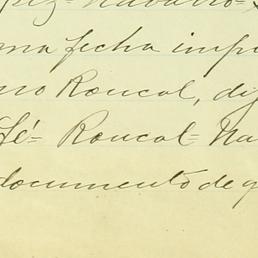 Navarro=
ma fecha imp
no Roncal, di
fé= Roncal= Na
documento de q